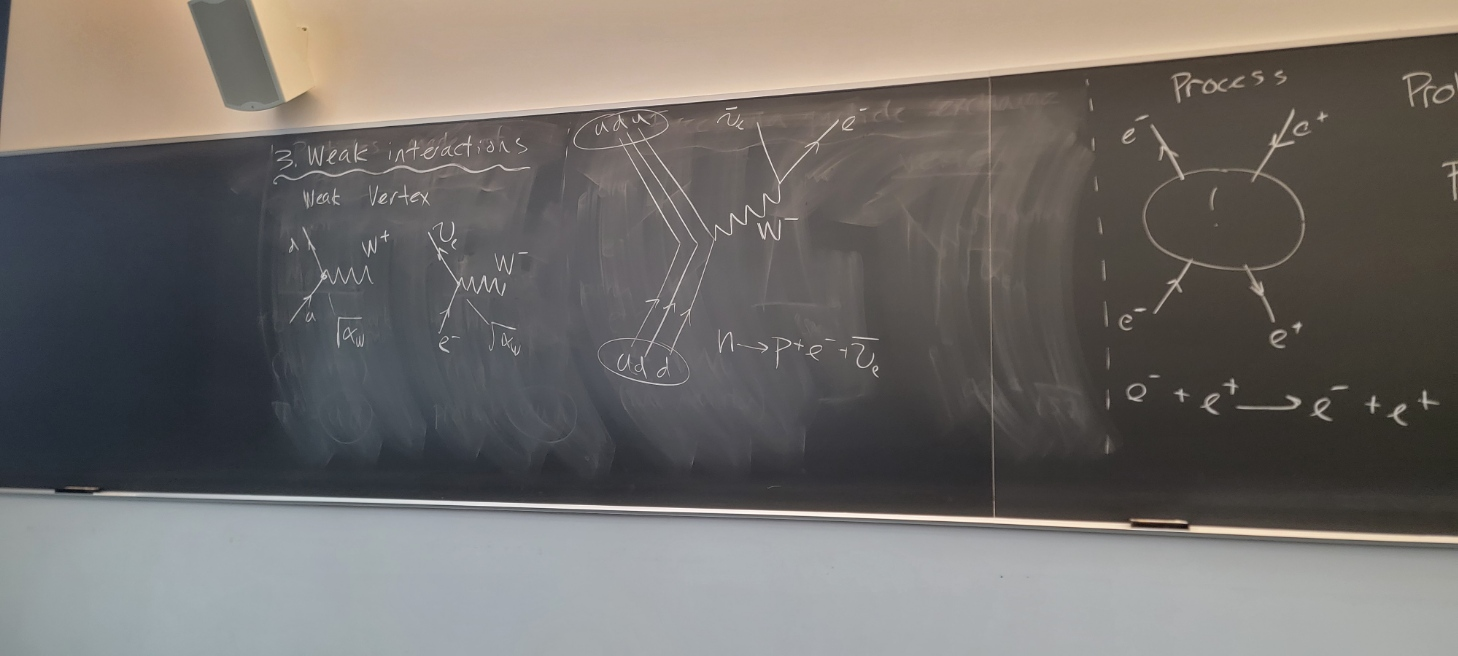 3. Weak interactions
Weak Vertex
d W⁺
u
√α_w
ν_e W⁻
e⁻
√α_w
udu
ν̄_e e⁻
W⁻
udd
n → p + e⁻ + ν̄_e
Process
e⁻ e⁺
e⁻ e⁺
e⁻ + e⁺ → e⁻ + e⁺